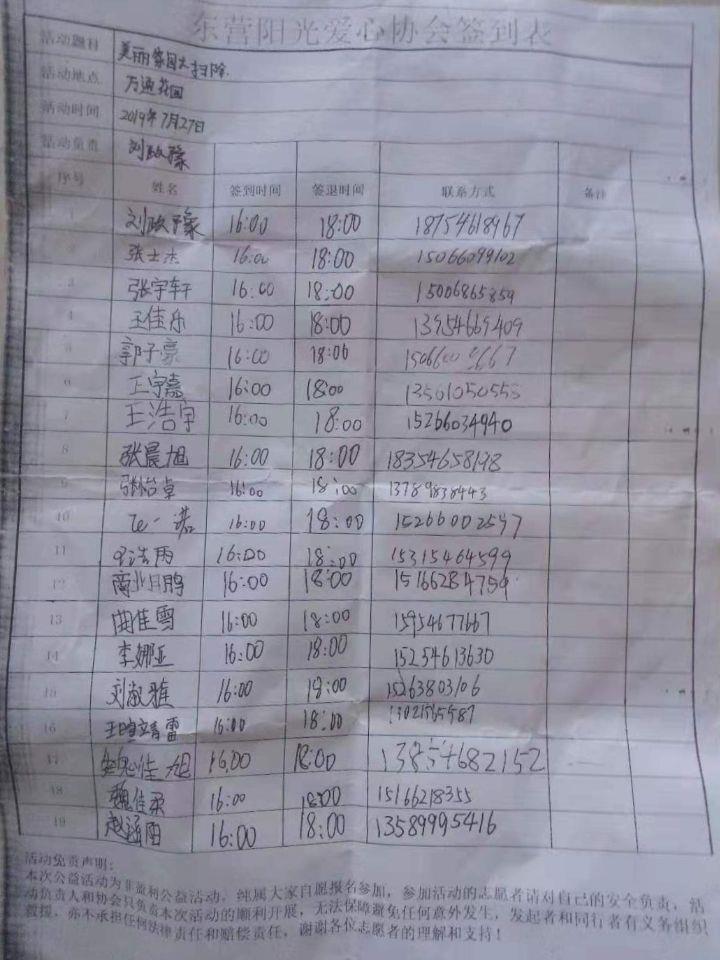 东营阳光爱心协会签到表
活动题目 美丽家园大扫除.
活动地点 万通花园
活动时间 2019年7月27日
活动负责 刘政豫
序号 姓名 签到时间 签退时间 联系方式 备注
1 刘政豫 16:00 18:00 18754618967
2 张士杰 16:00 18:00 15066099102
3 张宇轩 16:00 18:00 15006865859
4 王佳乐 16:00 18:00 13954669409
5 郭子豪 16:00 18:00
6 王宇嘉 16:00 18:00 13561050555
7 王浩宇 16:00 18:00 15266034940
8 张晨旭 16:00 18:00 18354658198
9 16:00 18:00 13789838443
10 16:00 18:00 15266002597
11 16:00 18:00 15315464599
12 商 鹏 16:00 18:00 15166284759
13 曲佳雪 16:00 18:00 15954677667
14 李娜亚 16:00 18:00 15254613630
15 刘淑雅 16:00 18:00 15263803106
16 王 雷 16:00 18:00
17 16:00 18:00 13854682152
18 魏佳柔 16:00 18:00 15166218355
19 赵涵阳 16:00 18:00 13589995416
活动免责声明:
本次公益活动为非盈利公益活动，纯属大家自愿报名参加，参加活动的志愿者请对自己的安全负责，活
动负责人和协会只负责本次活动的顺利开展，无法保障避免任何意外发生，发起者和同行者有义务组织
救援，亦不承担任何法律责任和赔偿责任，谢谢各位志愿者的理解和支持！